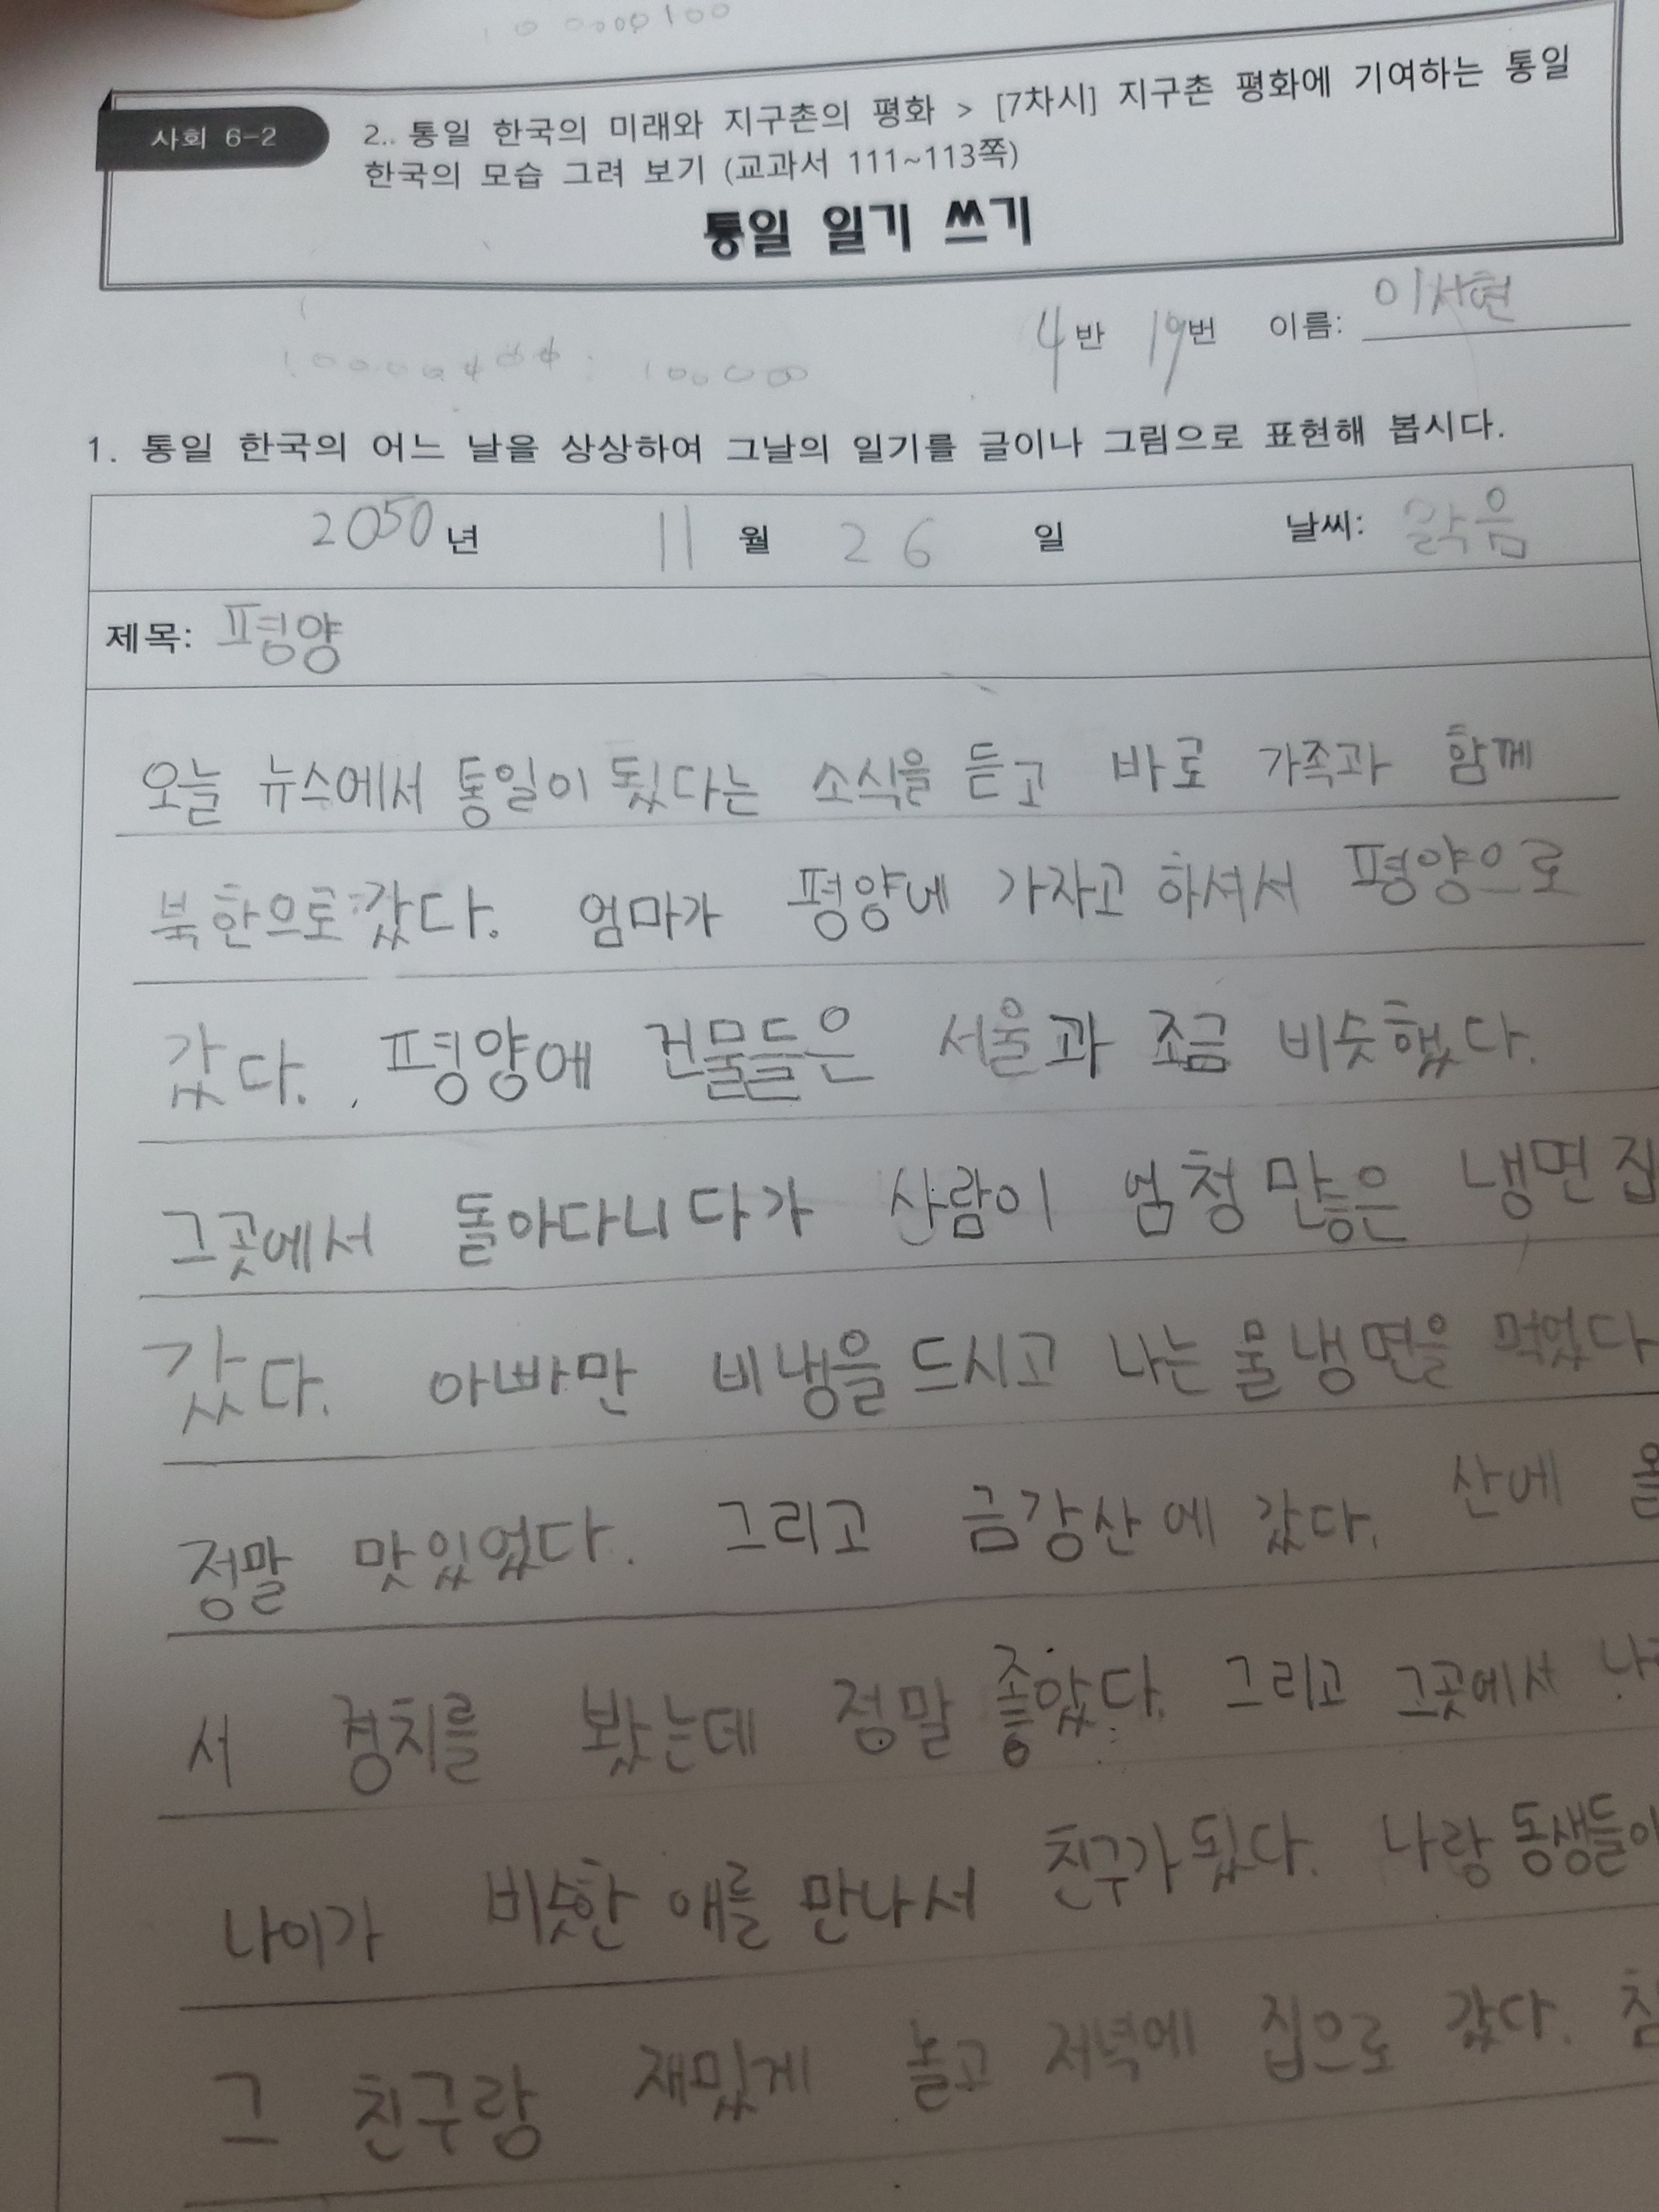 사회 6-2
2.. 통일 한국의 미래와 지구촌의 평화 > [7차시] 지구촌 평화에 기여하는 통일
한국의 모습 그려 보기 (교과서 111~113쪽)
통일 일기 쓰기
4반 19번 이름: 이서현
1. 통일 한국의 어느 날을 상상하여 그날의 일기를 글이나 그림으로 표현해 봅시다.
2050년 11월 26일 날씨: 맑음
제목: 평양
오늘 뉴스에서 통일이 됬다는 소식을 듣고 바로 가족과 함께
북한으로 갔다. 엄마가 평양에 가자고 하셔서 평양으로
갔다. 평양에 건물들은 서울과 조금 비슷했다.
그곳에서 돌아다니다가 사람이 엄청 많은 냉면집
갔다. 아빠만 비냉을 드시고 나는 물냉면을 먹었다
정말 맛있었다. 그리고 금강산에 갔다. 산에
서 경치를 봤는데 정말 좋았다. 그리고 그곳에서
나이가 비슷한 애를 만나서 친구가 됬다. 나랑 동생들이
그 친구랑 재밌게 놀고 저녁에 집으로 갔다. 참